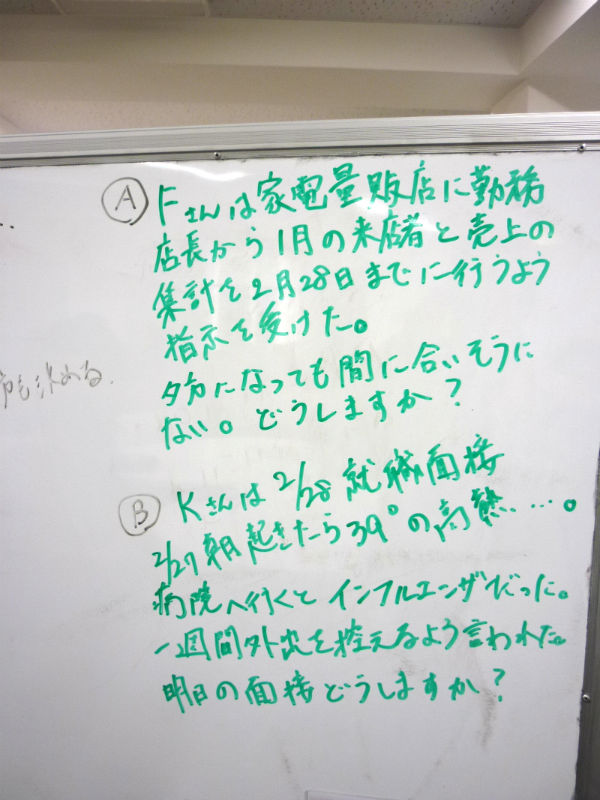 Ⓐ Fさんは家電量販店に勤務
店長から1月の来店者と売上の
集計を2月28日までに行うよう
指示を受けた。
夕方になっても間に合いそうに
ない。どうしますか？
Ⓑ Kさんは2/28就職面接
2/27朝起きたら39°の高熱…。
病院へ行くとインフルエンザだった。
一週間外出を控えるよう言われた。
明日の面接どうしますか？
める。